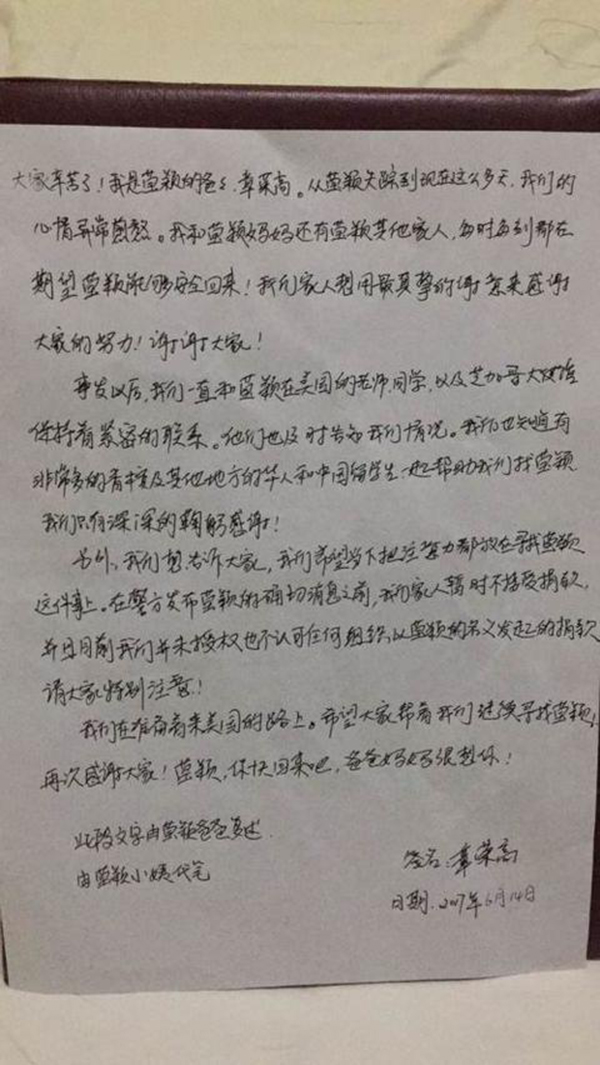 大家辛苦了！我是莹颖的爸爸章荣高。从莹颖失踪到现在这么多天，我们的
心情异常煎熬。我和莹颖妈妈还有莹颖其他家人，每时每刻都在
期望莹颖能够安全回来！我们家人想用最真挚的谢意来感谢
大家的努力！谢谢大家！
事发以后，我们一直和莹颖在美国的老师、同学，以及芝加哥大使馆
保持着紧密的联系。他们也及时告知我们情况。我们也知道有
非常多的香槟及其他地方的华人和中国留学生一起帮助我们找莹颖
我们只有深深的鞠躬感谢！
另外，我们想告诉大家，我们希望当下把注意力都放在寻找莹颖
这件事上。在警方发布莹颖的确切消息之前，我们家人暂时不接受捐款，
并且目前我们并未授权也不认可任何组织以莹颖的名义发起的捐款
请大家特别注意！
我们在准备着来美国的路上。希望大家帮着我们继续寻找莹颖！
再次感谢大家！莹颖，你快回来吧，爸爸妈妈很想你！
此段文字由莹颖爸爸复述.
由莹颖小姨代笔
签名：章荣高
日期. 2017年6月14日